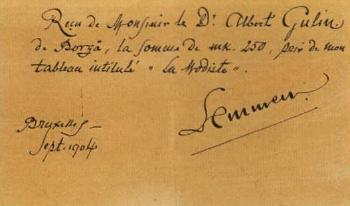 Reçu de Monsieur le Dr. Albert Gulin
de Borgå, la somme de mk. 250, prix de mon
tableau intitulé « La Modiste ».
Lemmen
Bruxelles —
Sept. 1904